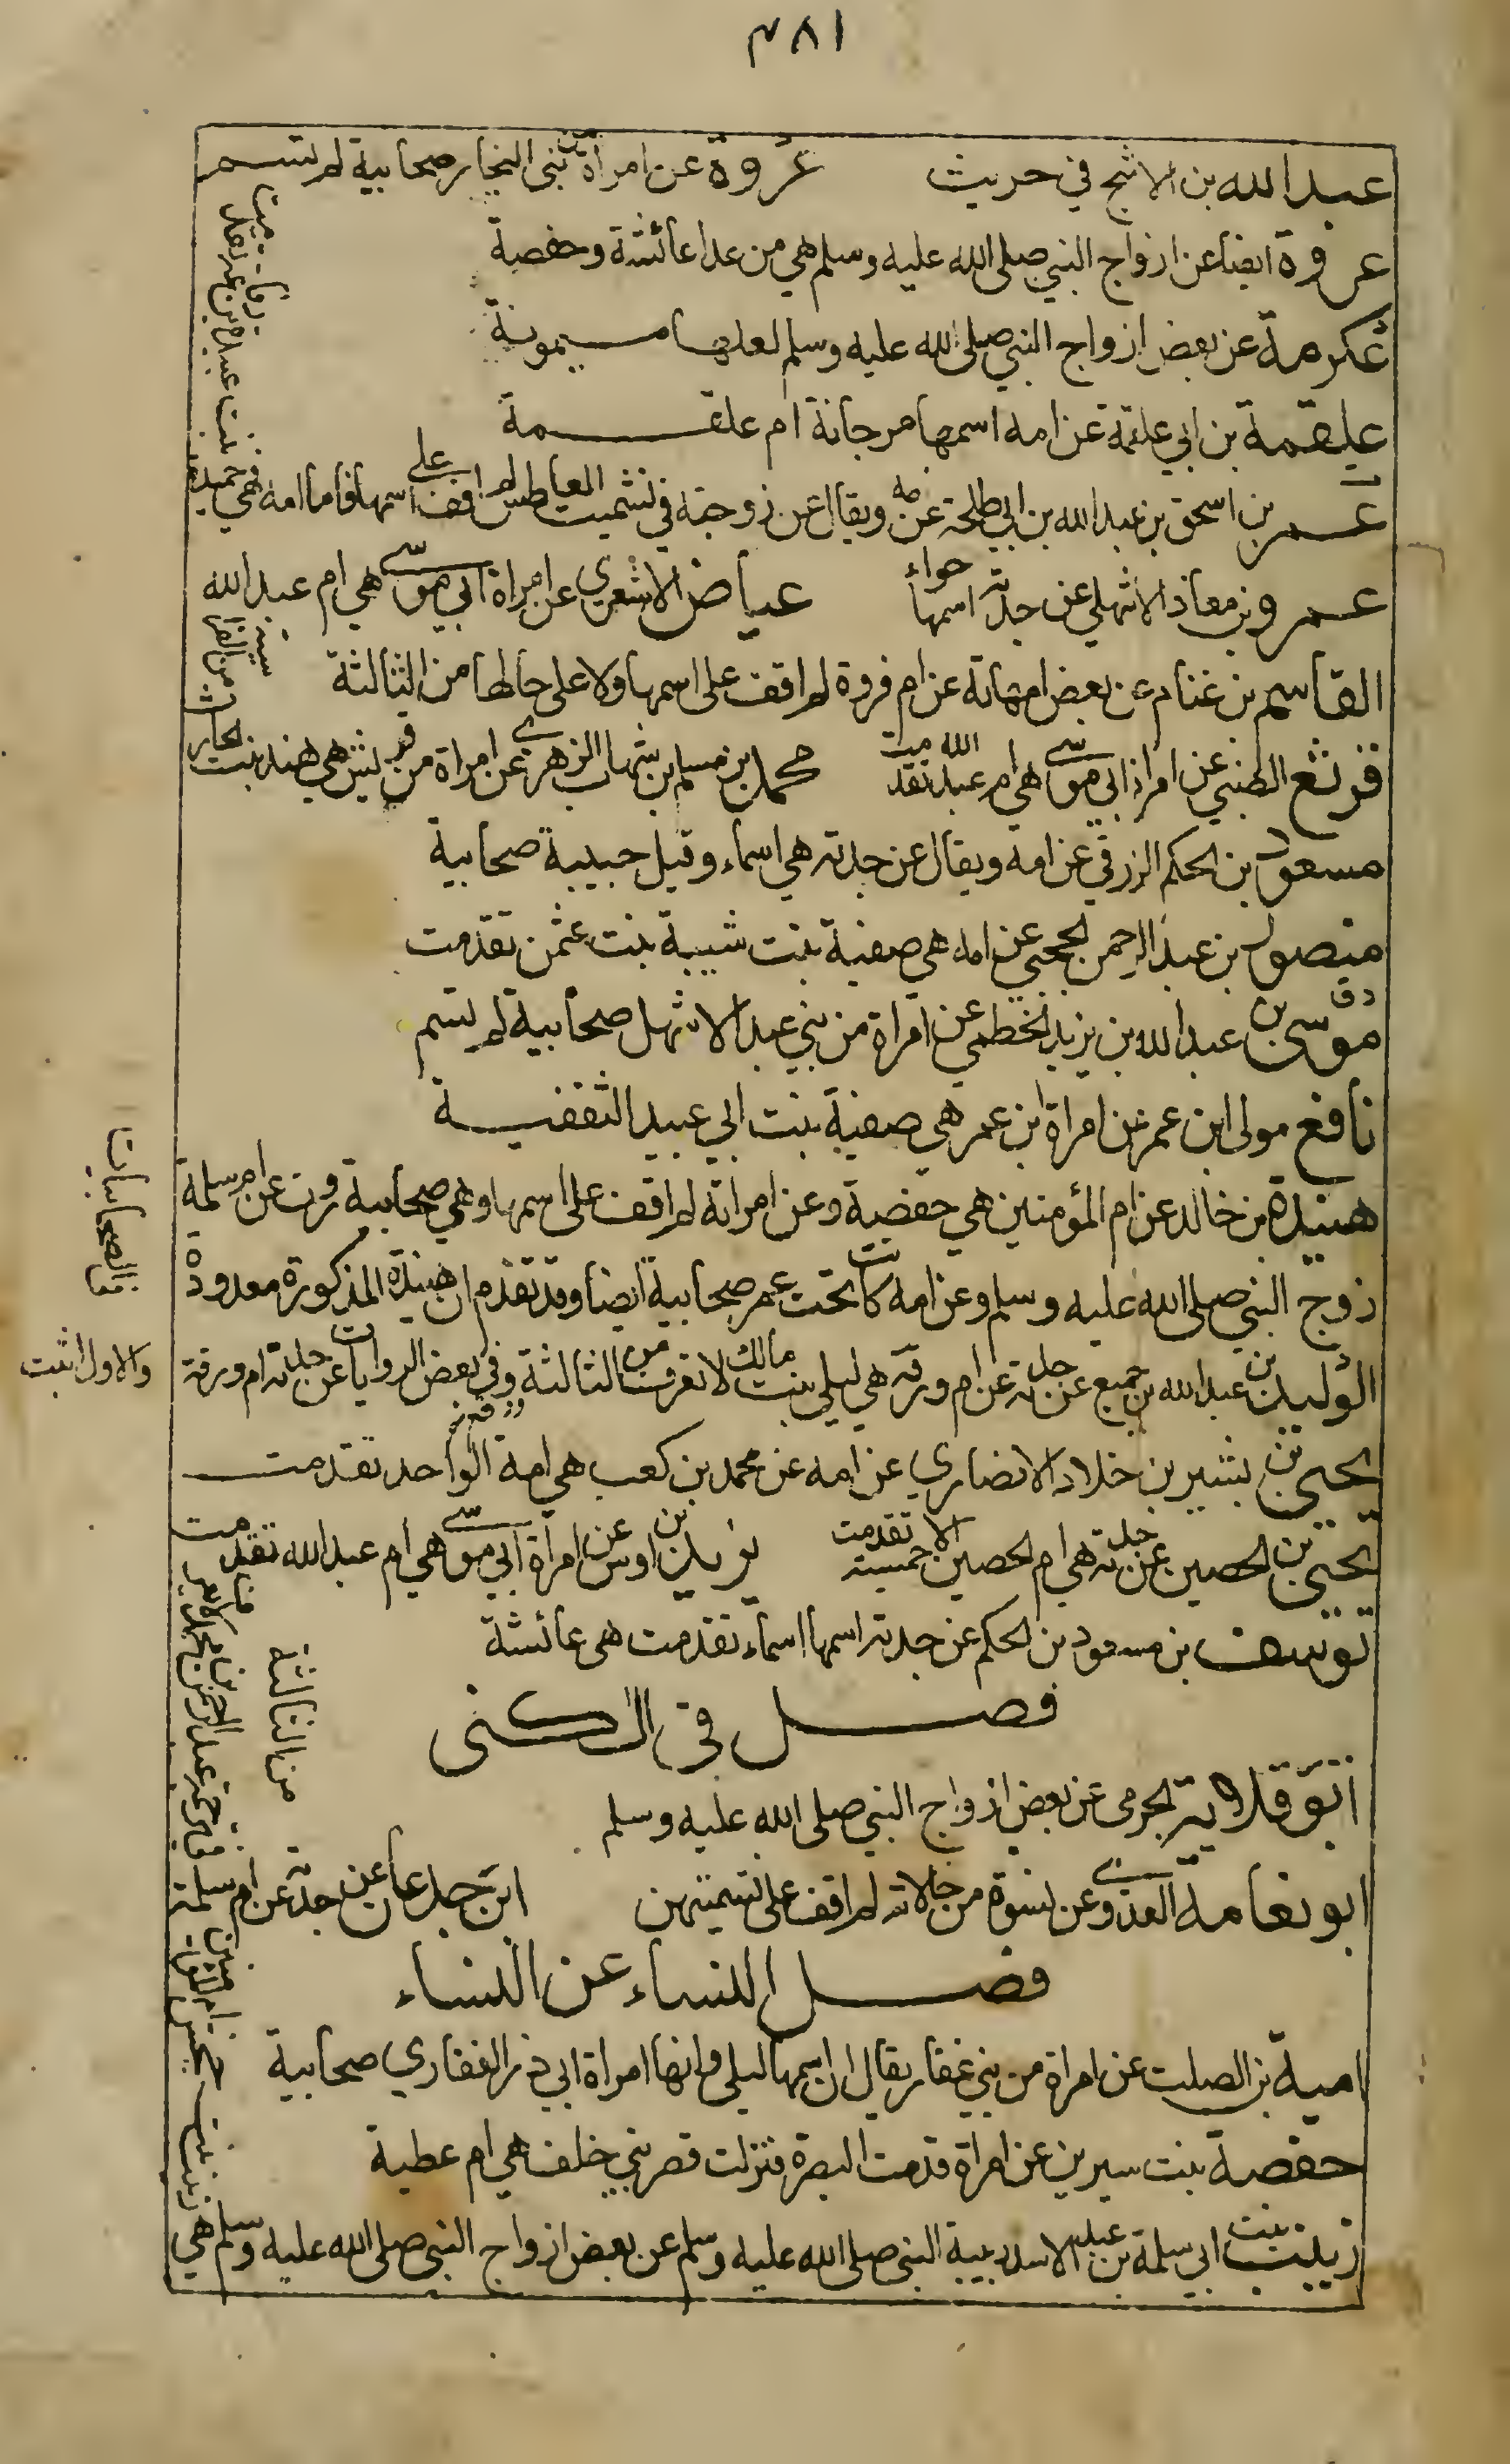 ٤٨١
عبد الله بن الاشج في حديث عروة عن امرأة من بني النجار صحابية لم تسم
عروة ايضا عن ازواج النبي صلى الله عليه وسلم هي من عدا عائشة وحفصة
عكرمة عن بعض ازواج النبي صلى الله عليه وسلم لعلها ميمونة
علقمة بن ابي علقمة عن امه اسمها مرجانة ام علقمة
عمر بن اسحق بن عبد الله بن ابي طلحة عن امه ويقال عن زوجته في تشميت العاطس لم اقف على اسمها فاما امه فهي حميدة
بنت عبيد بن رفاعة تقدمت
عمرو بن معاذ الاشهلي عن جدته اسمها حواء عياض الاشعري عن امراة ابي موسى هي ام عبد الله
القاسم بن غنام عن بعض امهاته عن ام فروة لم اقف على اسمها ولا على حالها من الثالثة
قرثع الضبي عن امراة ابي موسى هي ام عبد الله تقدمت محمد بن مسلم بن شهاب الزهري عن امراة من قريش هي هند بنت الحارث
مسعود بن الحكم الزرقي عن امه ويقال عن جدته هي اسماء وقيل حبيبة صحابية
منصور بن عبد الرحمن الحجبي عن امه هي صفية بنت شيبة بنت عثمن تقدمت
د ق
موسى بن عبد الله بن يزيد الخطمي عن امراة من بني عبد الاشهل صحابية لم تسم
نافع مولى ابن عمر عن امراة ابن عمر هي صفية بنت ابي عبيد الثقفية
هنيدة بن خالد عن ام المؤمنين هي حفصة وعن امراته لم اقف على اسمها وهي صحابية روت عن ام سلمة
زوج النبي صلى الله عليه وسلم وعن امه كانت تحت عمر صحابية ايضا وقد تقدم ان هنيدة المذكورة معدودة
في الصحابيات
الوليد بن عبد الله بن جميع عن جدته عن ام ورقة هي ليلى بنت مالك لا تعرف من الثالثة وفي بعض الروايات عن جدته ام ورقة
والاول اثبت
يحيى بن بشير بن خلاد الانصاري عن امه عن محمد بن كعب هي امة الواحد تقدمت
يحيى بن الحصين عن جدته هي ام الحصين الاحمسية تقدمت يزيد بن اوس عن امراة ابي موسى هي ام عبد الله تقدمت
يوسف بن مسعود بن الحكم عن جدته اسمها اسماء تقدمت هي عائشة
من الثالثة
فصل في الكنى
ابو قلابة الجرمي عن بعض ازواج النبي صلى الله عليه وسلم
ابو نعامة العدوي عن نسوة من خالاته لم اقف على تسميتهن ابن جدعان عن جدته عن ام سلمة
فصل النساء عن النساء
امية بن الصلت عن امراة من بني غفار يقال ان اسمها ليلى وانها امراة ابي ذر الغفاري صحابية
حفصة بنت سيرين عن امراة قدمت البصرة فنزلت قصر بني خلف هي ام عطية
زينب بنت ابي سلمة بن عبد الاسد ربيبة النبي صلى الله عليه وسلم عن بعض ازواج النبي صلى الله عليه وسلم هي
زينب بنت جحش ام المؤمنين